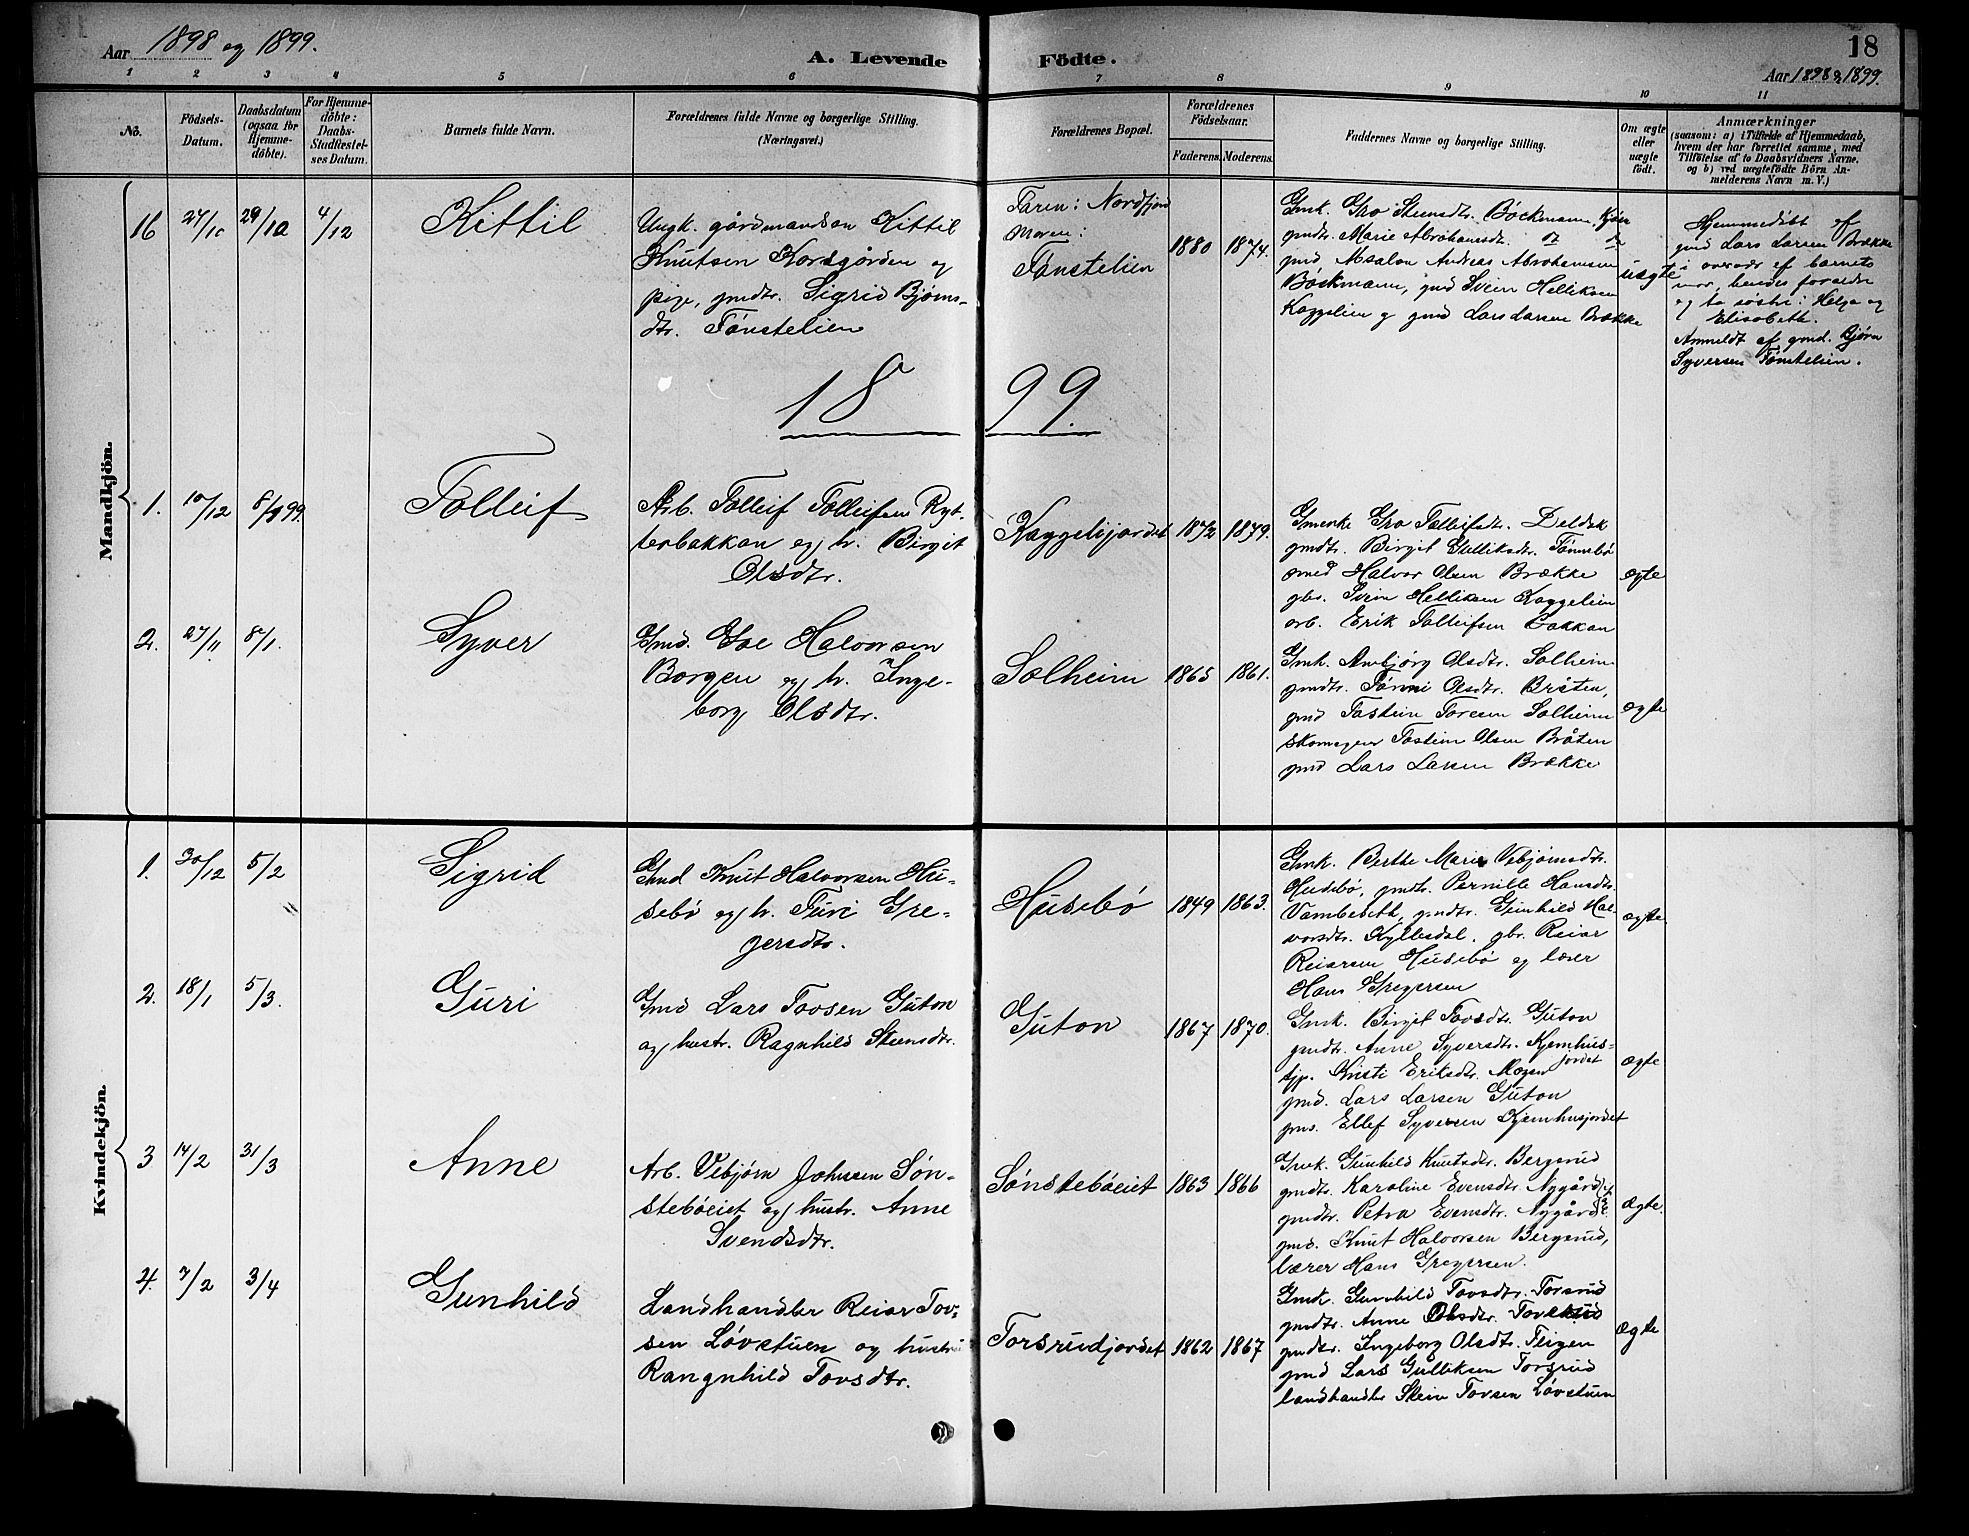 Aar 1898 og 1899.
A. Levende Födte.
18
Aar 1898 og 1899.
1 2 3 4 5 6 7 8 9 10 11
No.
Födsels-
Datum.
Daabsdatum
(ogsaa for
Hjemme-
döbte).
For Hjemme-
döbte:
Daabs-
Stadfæstel-
ses Datum.
Barnets fulde Navn.
Forældrenes fulde Navne og borgerlige Stilling.
(Næringsvei.)
Forældrenes Bopæl.
Forældrenes
Födselsaar.
Faderens. Moderens.
Faddernes Navne og borgerlige Stilling.
Om ægte
eller
uægte
födt.
Anmærkninger
(saasom: a) i Tilfælde af Hjemmedaab,
hvem der har forrettet samme, med
Tilföielse af to Daabsvidners Navne,
og b) ved uægtefödte Börn An-
melderens Navn m. V.)
Mandkjön.
16 27/10 29/10 4/12 Kittil
Ungk. gårdmandsön Kittil
Knutsen Korsgården og
pige, gmdtr. Sigrid Bjørns-
dtr. Tønstelien
Faren: Nordfjord
Moren:
Tønstelien
1880 1874.
Gmk. Gro Steensdtr. Bøckmann,
gmdtr. Marie Abrahamsdt. do do
gmd Absalon Andreas Abrahamsen
Bøckmann, gmd Svein Helliksen
Kaggelien og gmd Lars Larsen Brække
uægte
Hjemmedöbt af
gmd Lars Larsen Brække
i overvær af barnets
mor, hendes foreldre
og to søstre: Helga og
Elisabeth.
Anmeldt af gmd. Bjørn
Syversen Tønstelien.
1899.
1. 10/12 8/1 99. Tolleif
Arb. Tolleif Tolleifsen Ryt-
terbakkan og h. Birgit
Olsdtr.
Kaggelijordet 1872 1879.
Gmenke Gro Tolleifsdt.
gmdtr. Birgit Gulliksdtr. Tønnebö
smed Halvor Olsen Brække
gbr. Svein Helliksen Kaggelien
arb. Erik Tolleifsen Bakkan
ægte
2. 27/11 8/1. Syver
Gmd. Ole Halvorsen
Borgen og h. Inge-
borg Olsdtr.
Solheim 1865 1861.
Gmk. Anbjørg Olsdtr. Solheim
gmdtr. Tønni Olsdtr. Bråten,
gmd Tostein Toresen Solheim
skomager Tostein Olsen Bråten
gmd Lars Larsen Brække
ægte
Kvindekjön.
1. 30/12 5/2 Sigrid
Gmd Knut Halvorsen Hu-
sebö og h. Turi Gre-
gersdtr.
Husebö 1849 1863.
Gmk. Berthe Marie Vebjørnsdtr.
Husebö, gmdtr. Pernille Hansdtr.
gmdtr. Gunhild Hal-
vorsdtr. Kyllesdal, gbr. Reiar
Reiarsen Husebö og lærer
Hans Gregersen
ægte
2. 18/1 5/3. Guri
Gmd Lars Tovsen Guton
og hustr. Ragnhild Steensdtr.
Guton 1867 1870.
Gmk. Birgit Tovsdtr. Guton
gmdtr. Anne Syversdtr. Kjemhus-
jordet
tjp. Kristi Eriksdtr. Mogen
gmd. Lars Larsen Guton
gms. Ellef Syversen Kjemhusjordet
ægte
3 14/2 31/3 Anne
Arb. Vebjørn Johnsen Søn-
stebøeiet og hustr. Anne
Svendsdtr.
Sønstebøeiet 1863 1866
Gmk. Gunhild Knutsdtr. Bergsrud
gmdtr. Karoline Evensdtr. Nygård
gmdtr. Petra Evensdtr. Nygård
gmd. Knut Halvorsen Bergsrud,
lærer Hans Gregersen.
ægte.
4. 7/2 3/4 Gunhild
Landhandler Reiar Tov-
sen Løvstuen og hustru
Rangnhild Tovsdtr.
Torsrudjordet 1862 1867
Gmk. Gunhild Tovsdtr. Torsrud
gmdtr. Anne Olsdtr. Torsrud
gmdtr. Ingeborg Olsdtr. Teigen
gmd Lars Gulliksen Torsrud
landhandler Stein Tovsen Løvstuen
ægte